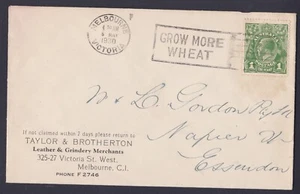 MELBOURNE
1930
VICTORIA
GROW MORE
WHEAT
1
Mr L. Gordon Taylor
Napier St
Essendon
If not claimed within 7 days please return to
TAYLOR & BROTHERTON
Leather & Grindery Merchants
325-27 Victoria St. West,
Melbourne, C.1.
PHONE F 2746